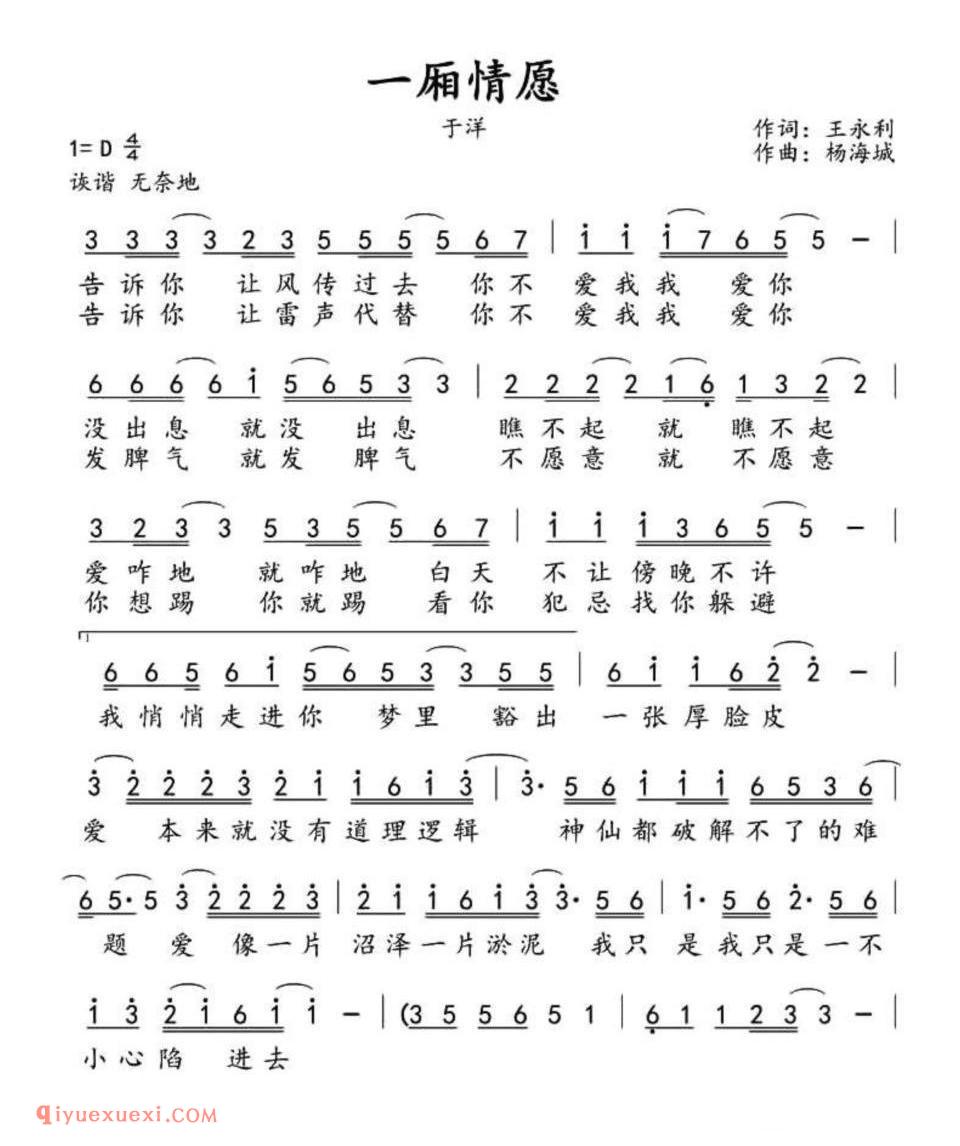 一厢情愿
于洋
作词：王永利
1= D 4/4
作曲：杨海城
诙谐 无奈地
3 3 3 3 2 3 5 5 5 5 6 7 | i i i 7 6 5 5 — |
告诉你 让风传过去 你不 爱我我 爱你
告诉你 让雷声代替 你不 爱我我 爱你
6 6 6 6 i 5 6 5 3 3 | 2 2 2 2 1 6 1 3 2 2 |
没出息 就没 出息 瞧不起 就 瞧不起
发脾气 就发 脾气 不愿意 就 不愿意
3 2 3 3 5 3 5 5 6 7 | i i i 3 6 5 5 — |
爱咋地 就咋地 白天 不让傍晚不许
你想踢 你就踢 看你 犯忌找你躲避
1
6 6 5 6 i 5 6 5 3 3 5 5 | 6 i i 6 2 2 — |
我悄悄走进你 梦里 豁出 一张厚脸皮
3 2 2 2 3 2 i i 6 i 3 | 3· 5 6 i i i 6 5 3 6
爱 本来就没有道理逻辑 神仙都破解不了的难
6 5· 5 3 2 2 2 3 | 2 i i 6 i 3 3· 5 6 | i· 5 6 2· 5 6 |
题 爱 像一片 沼泽一片淤泥 我只 是我只是一不
i 3 2 i 6 i i — | (3 5 5 6 5 1 | 6 1 1 2 3 3 — |
小心陷 进去
qiyuexuexi.COM